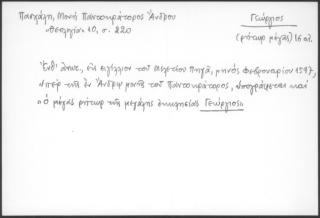 Πασχάλη, Μονή Παντοκράτορος Άνδρου
«Θεολογία» 10, σ. 220
Γεώργιος
(ρήτωρ μέγας) 16 αἰ.
Ἐνθ' ἀνωτ., εἰς σιγίλλιον τοῦ Μελετίου Πηγᾶ, μηνός Φεβρουαρίου 1597,
ὑπέρ τῆς ἐν Ἄνδρῳ μονῆς τοῦ Παντοκράτορος, ὑπογράφεται καί
«ὁ μέγας ρήτωρ τῆς μεγάλης ἐκκλησίας Γεώργιος»